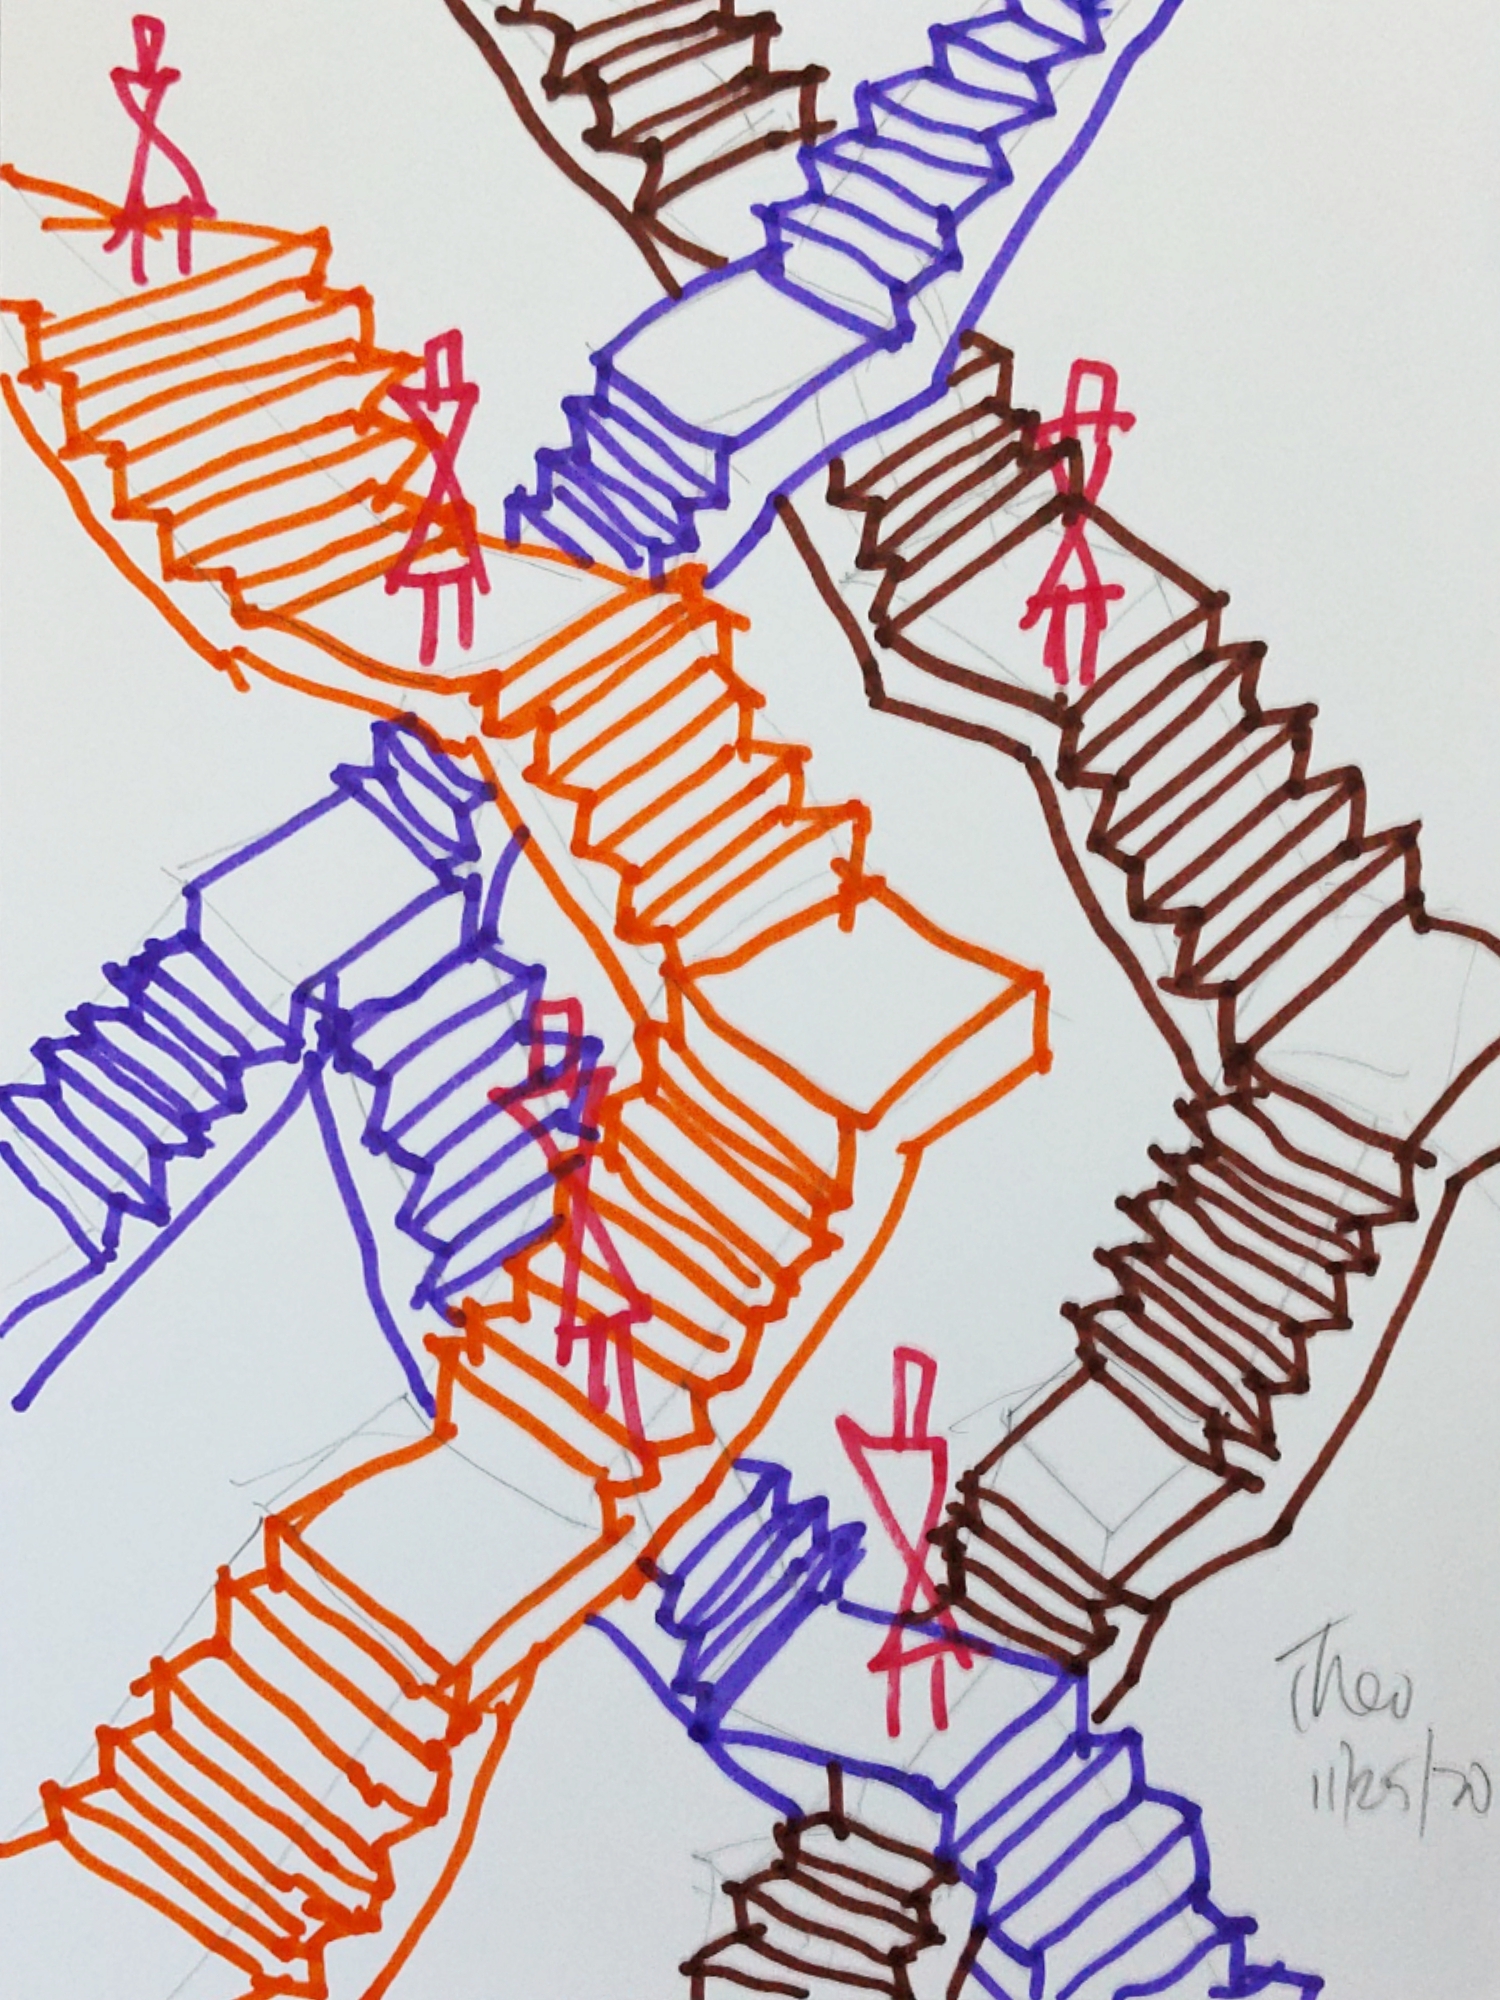 Theo
11/25/20